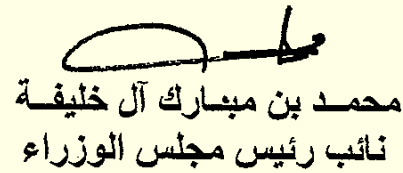 محمــد بن مبــارك آل خليفــة
نائب رئيس مجلس الوزراء